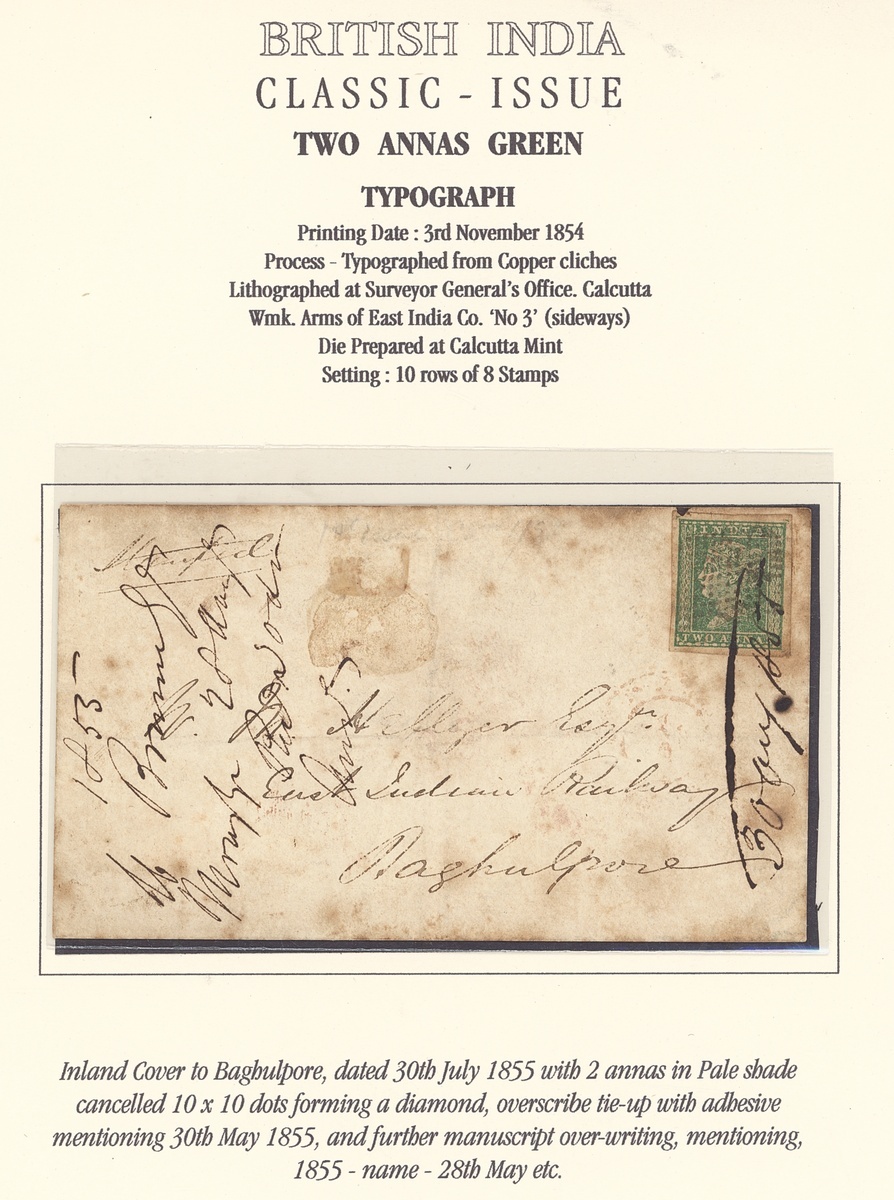 BRITISH INDIA
CLASSIC - ISSUE
TWO ANNAS GREEN
TYPOGRAPH
Printing Date : 3rd November 1854
Process - Typographed from Copper cliches
Lithographed at Surveyor General's Office. Calcutta
Wmk. Arms of East India Co. 'No 3' (sideways)
Die Prepared at Calcutta Mint
Setting : 10 rows of 8 Stamps
INDIA
TWO ANNAS
1855
Esqr.
East Indian Railway
Baghulpore
Inland Cover to Baghulpore, dated 30th July 1855 with 2 annas in Pale shade
cancelled 10 x 10 dots forming a diamond, overscribe tie-up with adhesive
mentioning 30th May 1855, and further manuscript over-writing, mentioning,
1855 - name - 28th May etc.